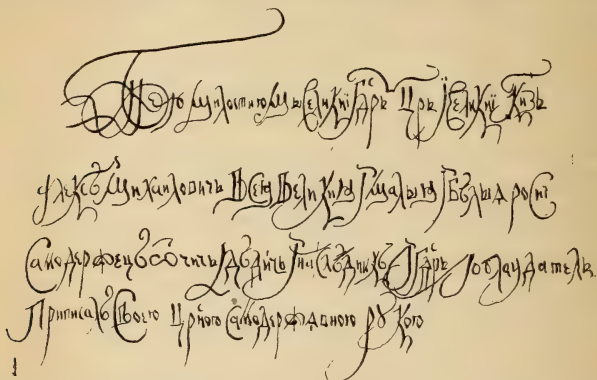 Бжиею милостию мы великиї гдрь црь ї великиї кнзь
Алексѣй Михаиловичь всея великия ї малыя ї бѣлыя росиї
Самодержецъ отчичь ї дѣдичь ї наслѣдникъ ї гдрь ї обладатель
Приписалъ своею црского самодержавного рукою